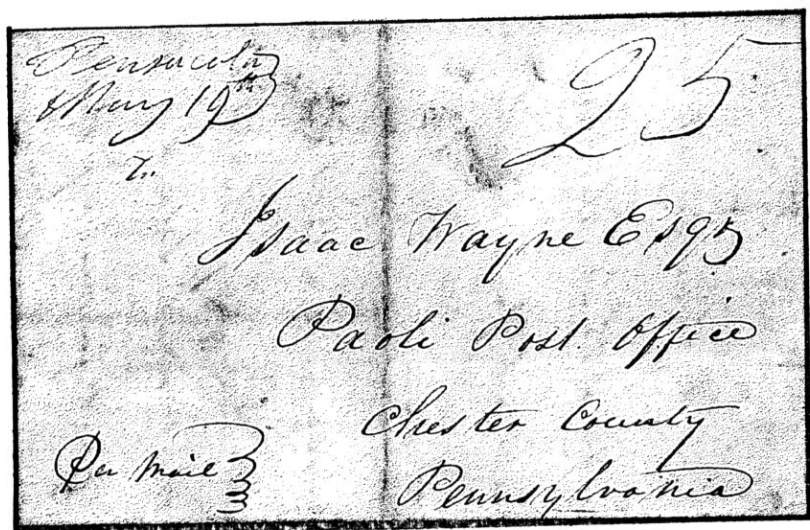 Pensacola
May 19th
25
Isaac Wayne Esqr
Paoli Post Office
Chester County
Pennsylvania
Per Mail